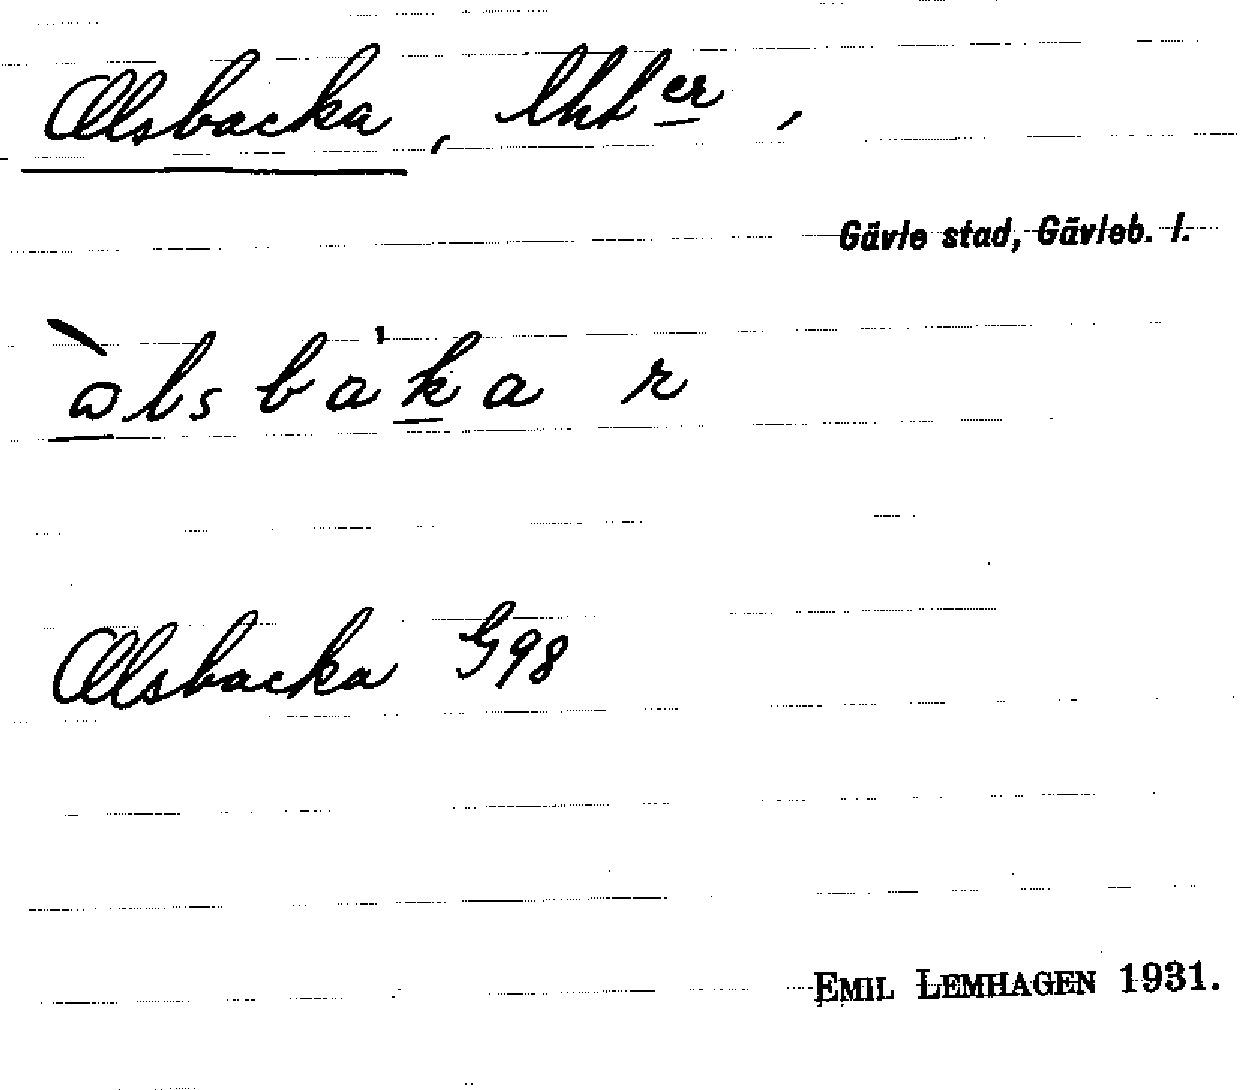 Alsbacka, lht er,
Gävle stad, Gävleb. l.
àlsbak̲a r
Alsbacka G98
EMIL LEMHAGEN 1931.